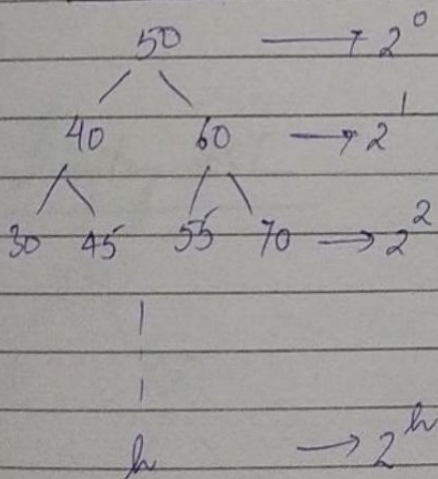 50 → 2⁰
40 60 → 2¹
30 45 55 70 → 2²
h → 2ʰ